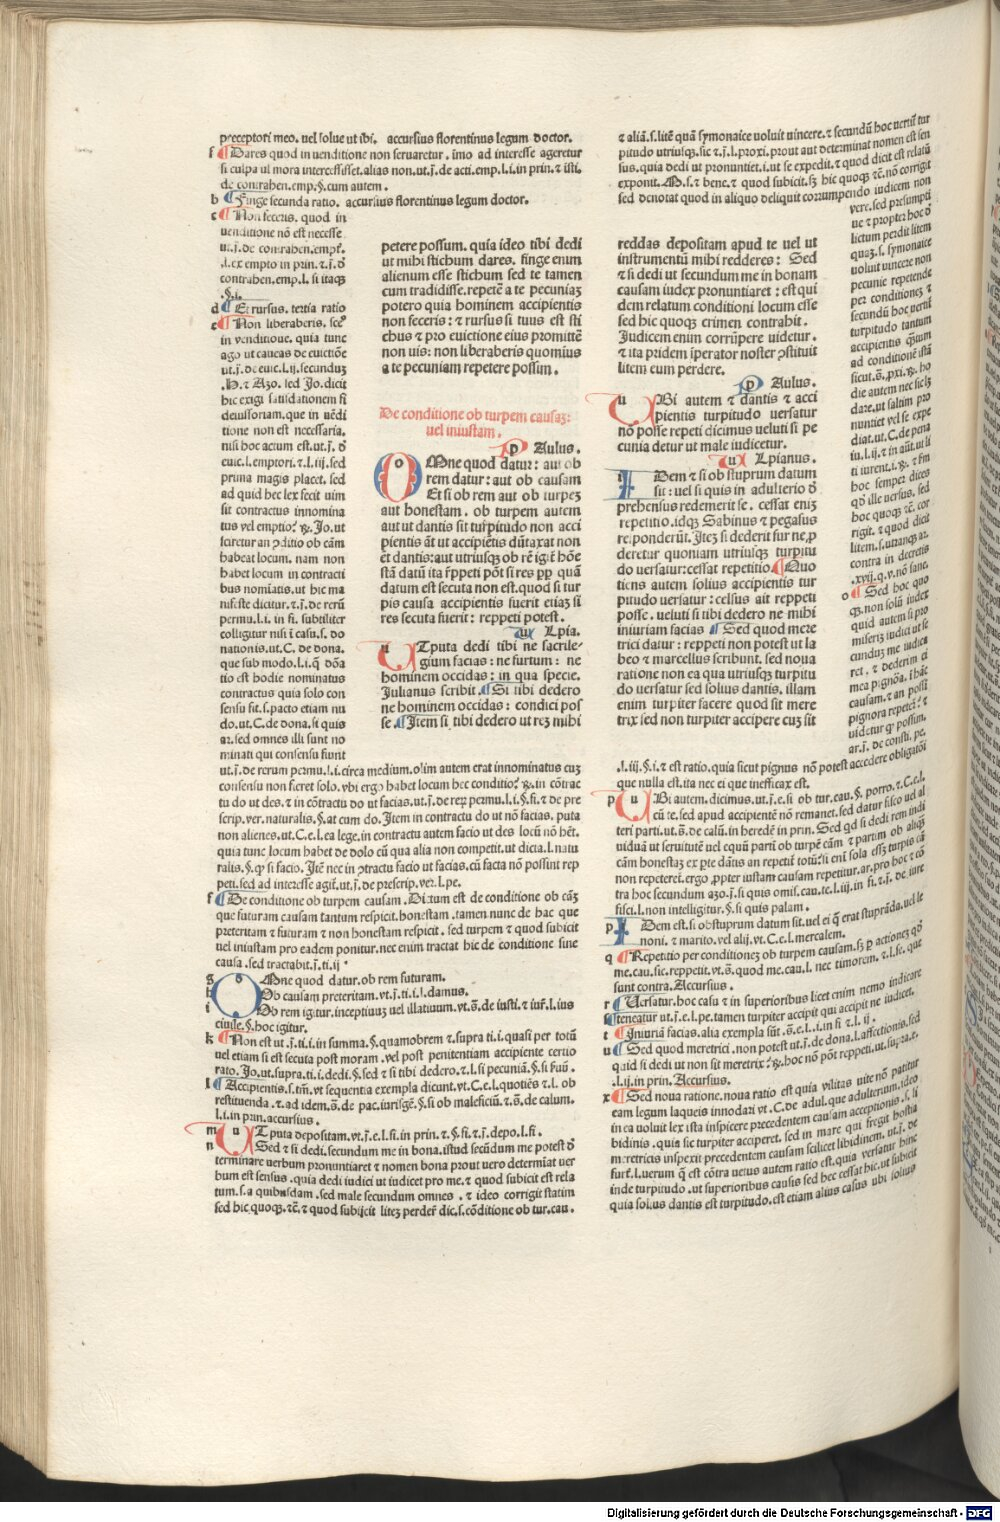 preceptori meo. uel solue ut ibi. accursius florentinus legum doctor.
f Dares quod in uenditione non seruaretur. imo ad interesse ageretur
si culpa ul mora interesset. alias non. ut. j. de acti. emp. l. i. in prin. τ isti.
de contrahen. emp. §. cum autem.
b Finge secunda ratio. accursius florentinus legum doctor.
c Non feceris. quod in
uenditione nō est necesse
contrahen. emp. l. si itaqꝫ
.§. i.
d Et rursus. tertia ratio
e Non liberaberis. scꝫ
in venditione. quia tunc
ut. j. de euic. l. ij. secunduꝫ
.H. τ Azo. sed Jo. dicit
hic exigi satisdationem si
tione non est necessaria.
nisi hoc actum est. ut. j. ō
euic. l. emptori. τ. l. iij. sed
prima magis placet. sed
ad quid hec lex fecit uim
sit contractus innomina
habeat locum. nam non
habet locum in contracti
bus nomiatis. ut hic ma
nifeste dicitur. τ. j. de rerū
permu. l. i. in fi. subtiliter
colligitur nisi i casu. s. do
nationis. ut. C. de dona.
que sub modo. l. i. q̄ dōa
tio est hodie nominatus
contractus quia solo con
sensu fit. s. pacto etiam nu
do. ut. C. de dona. si quis
ar. sed omnes illi sunt no
minati qui consensu fiunt
petere possum. quia ideo tibi dedi
ut mihi stichum dares. finge enim
alienum esse stichum sed te tamen
cum tradidisse. repetē a te pecuniaꝫ
potero quia hominem accipientis
non feceris: τ rursus si tuus est sti
chus τ pro euictione eius promittē
non uis: non liberaberis quominus
a te pecuniam repetere possim.
De conditione ob turpem causaꝫ:
uel iniustam.
p Aulus.
OMne quod datur: aut ob
rem datur: aut ob causam
Et si ob rem aut ob turpeꝫ
aut honestam. ob turpem autem
aut ut dantis sit turpitudo non acci
pientis āt ut accipiētis dūtaxat non
et dantis: aut utriusqꝫ ob rē igit̄ hōe
stā datū ita r̄ppeti pōt si res ꝓp quā
datum est secuta non est. quod si tur
pis causa accipientis fuerit etiaꝫ si
res secuta fuerit: reppeti potest.
u Lpia.
UTputa dedi tibi ne sacrile-
gium facias: ne furtum: ne
hominem occidas: in qua specie.
Julianus scribit. Si tibi dedero
ne hominem occidas: condici pos
se. Item si tibi dedero ut reꝫ mihi
ut. j. de rerum permu. l. i. circa medium. olim autem erat innominatus cuꝫ
consensu non fieret solo. vbi ergo habet locum hec conditio?
tu do ut des. τ in cōtractu do ut facias. ut. j. de reꝝ permu. l. i. §. fi. τ de pre
scrip. ver. naturalis. §. at cum do. Item in contractu do ut nō facias. puta
non alienes. ut. C. e. l. ea lege. in contractu autem facio ut des locū nō hēt.
quia tunc locum habet de dolo cū qua alia non competit. ut dicta. l. natu
ralis. §. ꝙ si facio. Itē nec in ꝯtractu facio ut facias. cū facta nō possint rep
peti. sed ad interesse agit̄. ut. j. de prescrip. ver. l. pe.
f De conditione ob turpem causam. Dictum est de conditione ob cāꝫ
que futuram causam tantum respicit. honestam. tamen nunc de hac que
preteritam τ futuram τ non honestam respicit. sed turpem τ quod subicit
uel iniustam pro eadem ponitur. nec enim tractat hic de conditione sine
causa. sed tractabit. j. ti. ij.
g OMne quod datur. ob rem futuram.
h Ob causam preteritam. vt. j. ti. i. l. damus.
i Ob rem igitur. inceptiuuꝫ uel illatiuum. vt. s. de iusti. τ iur̄. l. ius
ciuile. §. hoc igitur.
k Non est ut. j. ti. i. in summa. §. quamobrem τ. supra ti. i. quasi per totū
uel etiam si est secuta post moram. vel post penitentiam accipiente certio
rato. Jo. ut. supra. ti. i. dedi. §. sed τ si tibi dedero. τ. l. si pecuniā.
l Accipientis. s. tm̄. vt sequentia exempla dicunt. vt. C. e. l. quotiēs τ. l. ob
restituenda. τ. ad idem. s. de pac. iurisgē. §. si ob maleficiū. τ. s. de calum.
l. i. in prin. accursius.
m UTputa depositam. vt. j. e. l. si. in prin. τ. §. fi. τ. j. depo. l. si.
n Sed τ si dedi. secundum me in bona. istud secūdum me potest ō
terminare uerbum pronuntiaret τ nomen bona prout uero determiat uer
bum est sensus. quia dedi iudici ut iudicet pro me. τ quod subicit est rela
tum. s. a quibusdam. sed male secundum omnes. τ ideo corrigit statim
sed hic quoqꝫ. τē. τ quod subijcit liteꝫ perdere dic. s. cōditione ob tur. cau.
τ aliā. s. litē quā symonaice uoluit uincere. τ secundū hoc uertit̄ tur
pitudo utriusqꝫ. sic τ. j. l. proxi. prout aut determinat nomen est sen
sus. quia dedi ut pronuntiet. i. ut se expedit. τ quod dicit est relatū
exponit. M. s. τ bene. τ quod subicit. sꝫ hic quoqꝫ τē. nō corrigit
sed denotat quod in aliquo deliquit corrumpendo iudicem non
reddas depositam apud te uel ut
instrumentū mihi redderes: Sed
τ si dedi ut secundum me in bonam
causam iudex pronuntiaret: est qui
dem relatum conditioni locum esse
sed hic quoqꝫ crimen contrahit.
Judicem enim corrūpere uidetur.
τ ita pridem iperator noster ꝯstituit
litem eum perdere.
p Aulus.
UBi autem τ dantis τ acci
pientis turpitudo versatur
nō posse repeti dicimus veluti si pe
cunia detur ut male iudicetur.
u Lpianus.
IDem τ si ob stuprum datum
sit: uel si quis in adulterio ō
prehensus redemerit se. cessat eniꝫ
repetitio. idqꝫ Sabinus τ pegasus
responderūt. Iteꝫ si dederit fur ne ꝓ
deretur quoniam utriusqꝫ turpitu
do versatur: cessat repetitio. Quo
tiens autem solius accipientis tur
pitudo uersatur: celsus ait reppeti
posse. ueluti si tibi dedero ne mihi
iniuriam facias. Sed quod mere
trici datur: reppeti non potest ut la
beo τ marcellus scribunt. sed noua
ratione non ea qua utriusqꝫ turpitu
do versatur sed solius dantis. illam
enim turpiter facere quod sit mere
trix sed non turpiter accipere cuꝫ sit
vere. sed presumpti
ue τ propter hoc ō
lictum perdit litem
quaꝫ. s. symonaice
uoluit uincere non
pecunie repetende
per conditionez τ
secundū hoc uertit̄
turpitudo tantum
accipientis
ad conditionē istā
die autem nec
dare. ut saltim pro
nuntiet vel se expe
diat. ut. C. de pena
hoc semper dices
hoc quoqꝫ τē. cor
rigit. τ quod dicit
litem. s. utranqꝫ ar.
contra in decretis
.xvij. q. v. nō sane.
o Sed hoc quo
qꝫ. non solū iudex
quid autem si pro
miseriꝫ iudici ut se
cunduꝫ me iudica
ret. τ dederim ei
mea pignōa.
causam. τ an possi
pignora repetere? τ
uidetur ꝙ possim.
ar. j. de consti. pe.
.l. iij. §. i. τ est ratio. quia sicut pignus nō potest accedere obligatōi
que nulla est. ita nec ei que inefficax est.
p UBi autem. dicimus. ut. j. e. si ob tur. cau. §. porro. τ. C. e. l.
cū te. sed apud accipientē nō remanet. sed datur fisco uel al
teri parti. ut. s. de calū. in heredē in prin. Sed qd si dedi rem indi
uiduā ut seruitutē uel equū parti ob turpē cām τ partim ob aliqꝫ
cām honestaꝫ ex pte dātis an repetit̄ totū? si eni sola esset turpis cā
non repeteret. ergo ꝓpter iustam causam repetitur. ar. pro hoc τ cō
tra hoc secundum azo. j. si quis omis. cau. te. l. iij. in fi. τ. j. de iure
fisci. l. non intelligitur. §. si quis palam.
p IDem est. si ob stuprum datum sit. uel ei q̄ erat stuprāda. uel le
noni. τ marito. vel alij. vt. C. e. l. mercalem.
q Repetitio per conditionez ob turpem causam. sꝫ ꝑ actionez qō
me. cau. sic. reppetit. vt. s. quod me. cau. l. nec timorem. τ. l. se. que
sunt contra. Accursius.
r Uersatur. hoc casu τ in superioribus licet enim nemo indicare
s teneatur ut. j. e. l. pe. tamen turpiter accipit qui accipit ne iudicet.
t Iniuriā facias. alia exempla sūt. s. e. l. i. in fi τ. l. ij.
u Sed quod meretrici. non potest ut. j. de dona. l. affectionis. sed
quid si dedi ut non sit meretrix? hoc nō pōt reppeti. ut. supra. e.
.l. ij. in prin. Accursius.
x Sed noua ratione. noua ratio est quia vilitas uite nō patitur
eam legum laqueis innodari vt. C. de adul. que adulterium. ideo
in ea uoluit lex ista inspicere precedentem causam acceptionis. s. li
bidinis. quia sic turpiter acciperet. sed in mare qui fregit hostia
meretricis inspexit precedentem causam scilicet libidinem. ut. j. de
furt̄. l. uerum ꝙ est cōtra uerus autem ratio est. quia versatur hinc
inde turpitudo. ut superioribus causis sed hec cessat hic. ut subicit
quia solius dantis est turpitudo. est etiam alius casus ubi solius
Digitalisierung gefördert durch die Deutsche Forschungsgemeinschaft - DFG